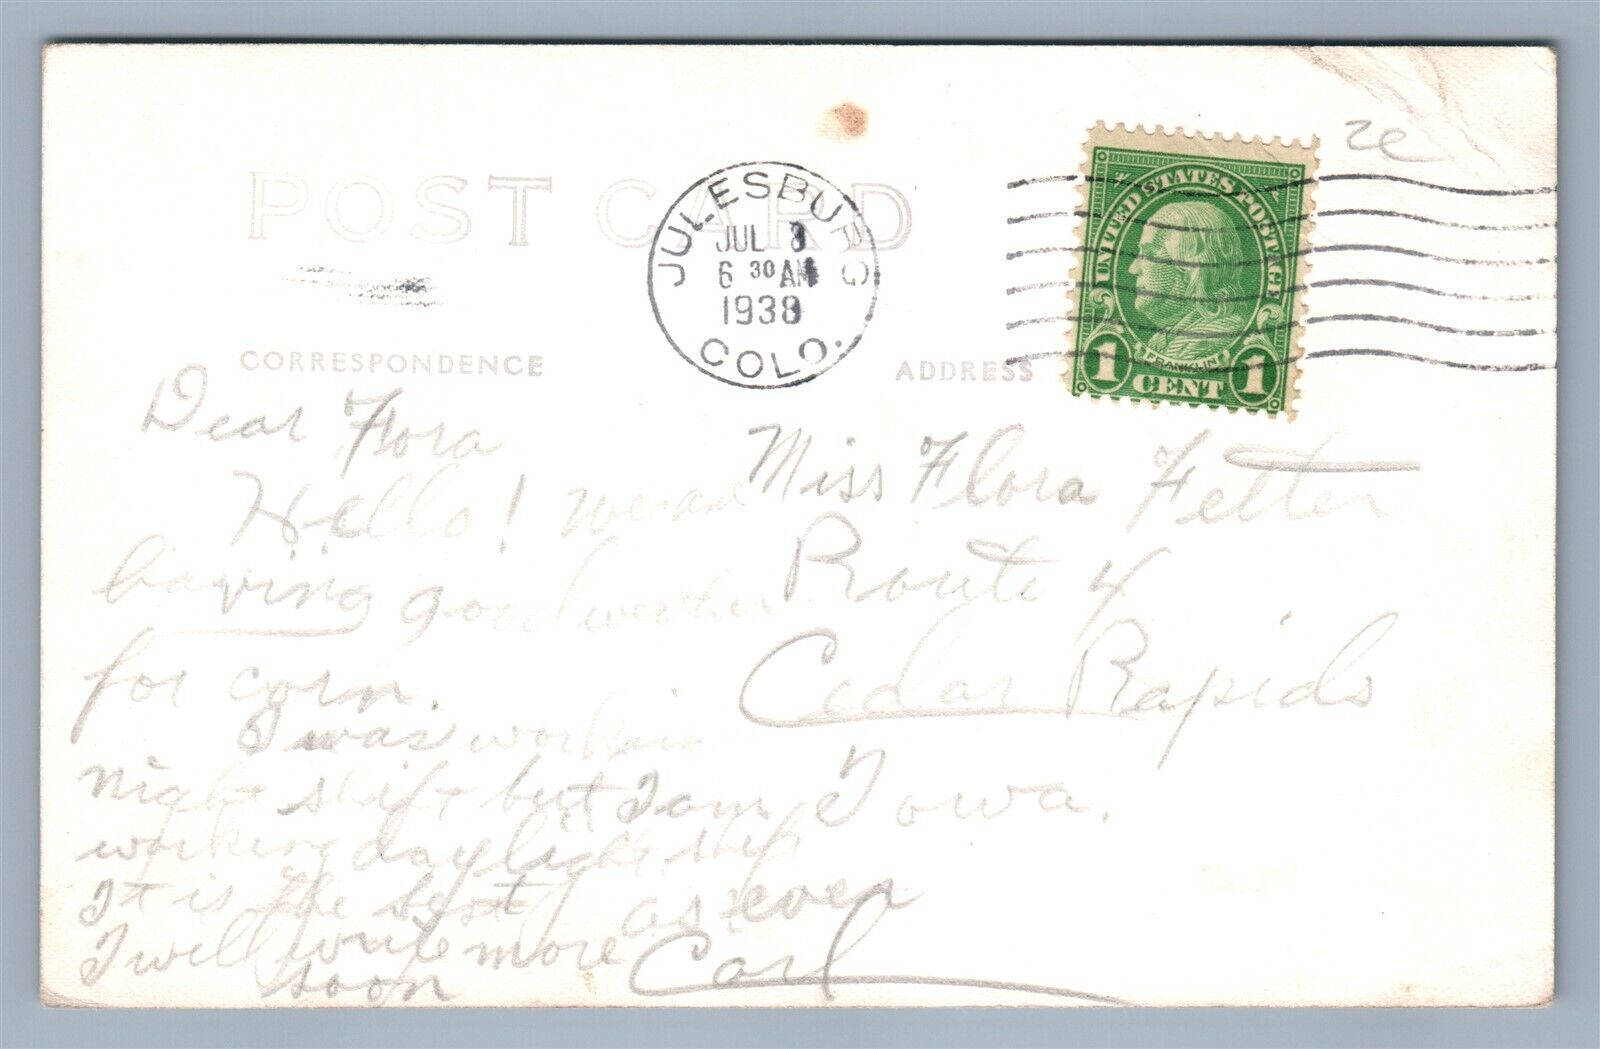 POST CARD
JULESBURG
JUL 8
6 30 AM
1938
COLO.
2c
UNITED STATES POSTAGE
FRANKLIN
1 CENT 1
CORRESPONDENCE
ADDRESS
Dear Flora
Hello! We are
having good weather
for corn.
I was working
night shift but I am
working daylight shift
It is the best
I will write more
soon
as ever
Carl
Miss Flora Fetter
Route 4
Cedar Rapids
Iowa.